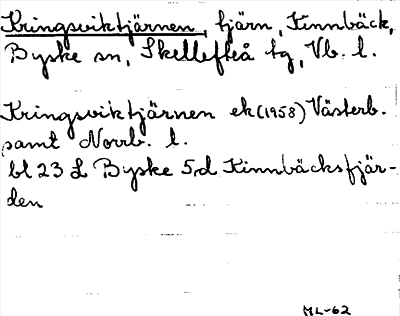 Kringsviktjärnen, tjärn, Kinnbäck,
Byske sn, Skellefteå tg, Vb. l.
Kringsviktjärnen ek (1958) Västerb.
samt Norrb. l.
bl 23 L Byske 5,d Kinnbäcksfjär-
den
ML-62